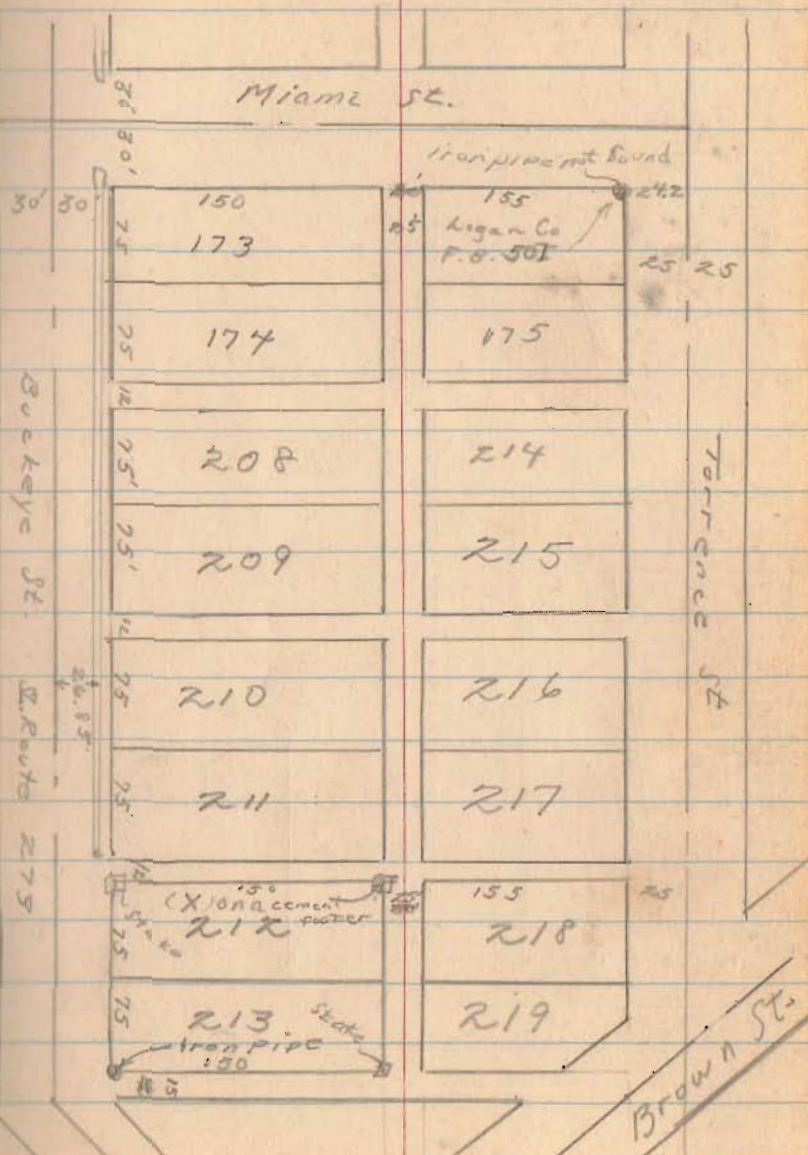 Miami St.
30' 30'
Iron pipe not found
30' 30
150
155
24.2
75
173
25
Logan Co
F.B. 501
25 25
75
174
175
12
75'
208
214
75'
209
215
Buckeye St.
Torrence St
12
75
210
216
26.85'
75
211
217
Route 275
12
150
155
25
(X) on a cement
footer
Stake
75
212
218
75
213
Stake
219
Iron pipe
150
15
Brown St.